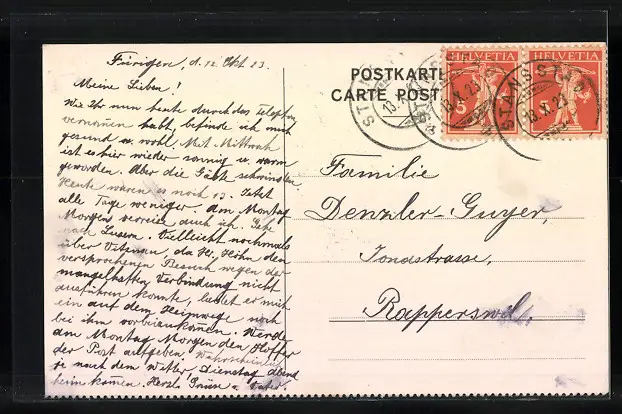 Fürigen, d. 12. Okt 23.
Meine Lieben!
Wie Ihr nun heute durch das Telephon
vernommen habt, befinde ich mich
gesund u. wohl. Mit Mittwoch
ist es hier wieder sonnig u. warm
geworden. Aber die Gäste schwinden
Heute waren es noch 13. Jetzt
alle Tage weniger. Am Montag
Morgen verreise auch ich. Gehe
nach Luzern. Vielleicht nochmals
über Vitznau, da Hr. Höhn den
versprochenen Besuch wegen der
mangelhaften Verbindung nicht
ausführen konnte, ladet er mich
ein auf dem Heimwege noch
bei ihm vorbeizukommen. Werde
am Montag Morgen den Koffer
der Post aufgeben. Wahrscheinlich
je nach dem Wetter, Dienstag abend
heim kommen. Herzl. Grüsse
POSTKARTE
CARTE POST
HELVETIA
HELVETIA
STANSSTAD
13.X.23
Familie
Denzler-Guyer,
Tondstrasse,
Rapperswil.